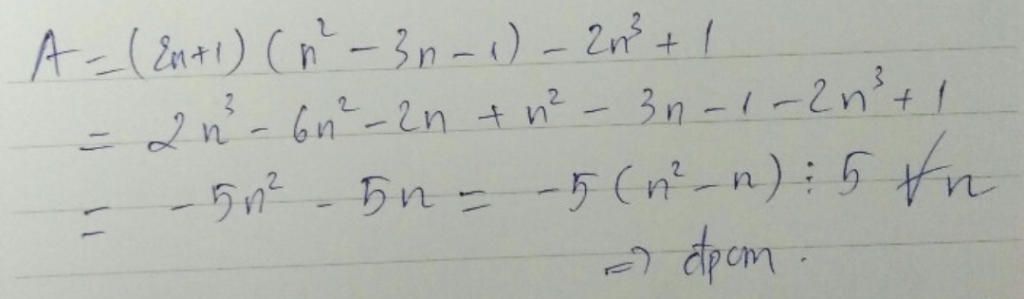 A = (2n+1) (n² - 3n - 1) - 2n³ + 1
= 2n³ - 6n² - 2n + n² - 3n - 1 - 2n³ + 1
= - 5n² - 5n = -5 (n² - n) ⋮ 5 ∀n
=> đpcm.